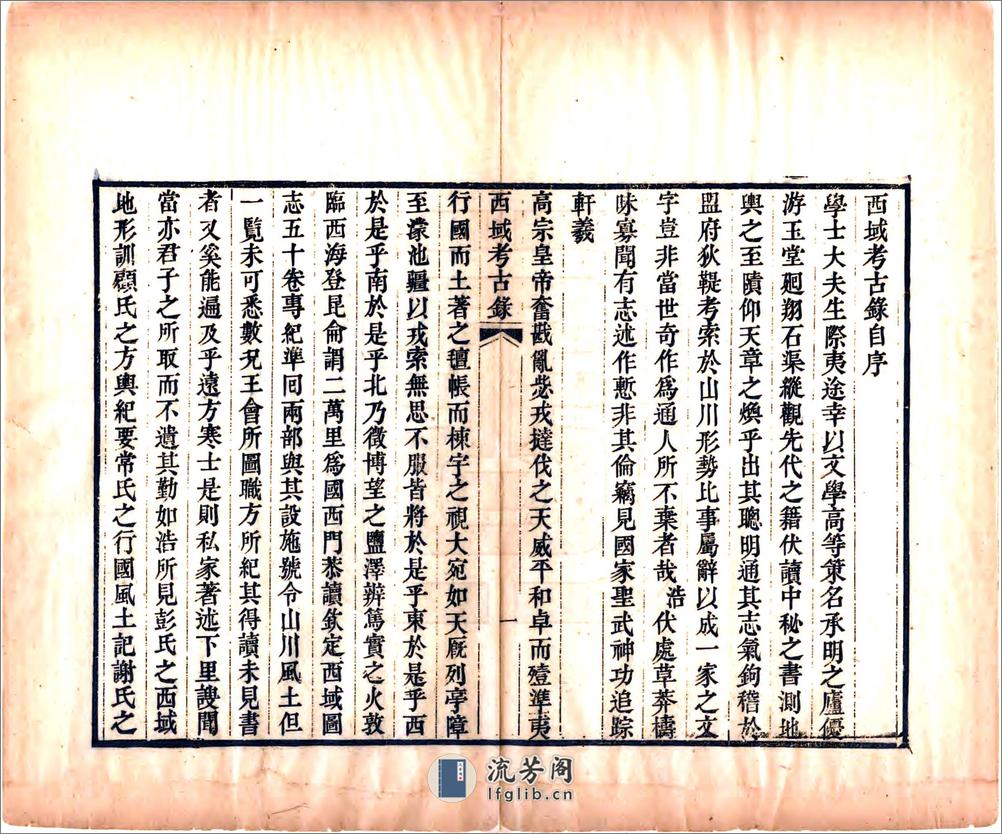 西域考古錄自序
學士大夫生際夷途幸以文學高等策名承明之廬優
游玉堂廻翔石渠縱觀先代之籍伏讀中秘之書測地
輿之至賾仰天章之煥乎出其聰明通其志氣鉤稽於
盟府狄鞮考索於山川形勢比事屬辭以成一家之文
字豈非當世奇作爲通人所不棄者哉浩伏處草莽檮
昧寡聞有志述作慙非其倫竊見國家聖武神功追踪
軒羲
高宗皇帝奮戡亂毖戎撻伐之天威平和卓而殪準夷
西域考古錄
一
行國而土著之氊帳而棟宇之視大宛如天厩列亭障
至濛池疆以戎索無思不服皆將於是乎東於是乎西
於是乎南於是乎北乃徵博望之鹽澤辨篤實之火敦
臨西海登昆侖謂二萬里爲國西門恭讀欽定西域圖
志五十卷專紀準回兩部與其設施號令山川風土但
一覽未可悉數况王會所圖職方所紀其得讀未見書
者又奚能遍及乎遠方寒士是則私家著述下里謏聞
當亦君子之所取而不遺其勤如浩所見彭氏之西域
地形訓顧氏之方輿紀要常氏之行國風土記謝氏之
流芳阁
lfglib.cn